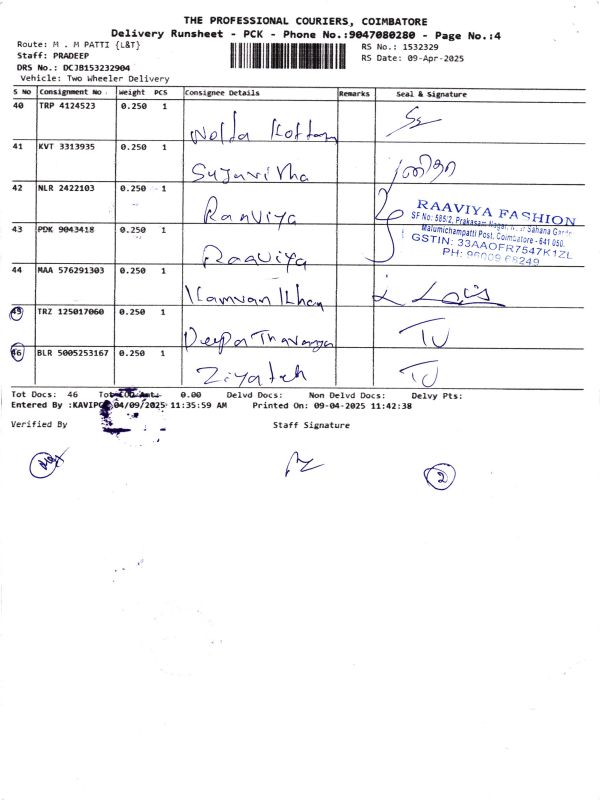 THE PROFESSIONAL COURIERS, COIMBATORE
Delivery Runsheet - PCK - Phone No.:9047080280 - Page No.:4
Route: M . M PATTI {L&T}
RS No.: 1532329
Staff: PRADEEP
RS Date: 09-Apr-2025
DRS No.: DCJB153232904
Vehicle: Two Wheeler Delivery
S No Consignment No . Weight PCS Consignee Details Remarks Seal & Signature
40 TRP 4124523 0.250 1
41 KVT 3313935 0.250 1
Sujavitha
42 NLR 2422103 0.250 1
Raaviya
RAAVIYA FASHION
SF No: 585/2, Prakasam Nagar, Near Sahana Garden
Malumichampatti Post, Coimbatore - 641 050.
GSTIN: 33AAOFR7547K1ZL
PH: 96009 68249
43 PDK 9043418 0.250 1
Raaviya
44 MAA 576291303 0.250 1
Kamran Khan
45 TRZ 125017060 0.250 1
TU
46 BLR 5005253167 0.250 1
Ziyateh TU
Tot Docs: 46 Tot COD Amt: 0.00 Delvd Docs: Non Delvd Docs: Delvy Pts:
Entered By :KAVIPCK 04/09/2025 11:35:59 AM Printed On: 09-04-2025 11:42:38
Verified By Staff Signature
2